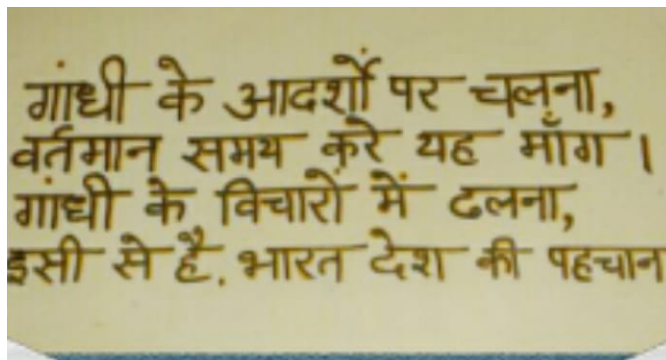 गांधी के आदर्शों पर चलना,
वर्तमान समय करे यह माँग ।
गांधी के विचारों में ढलना,
इसी से है. भारत देश की पहचान